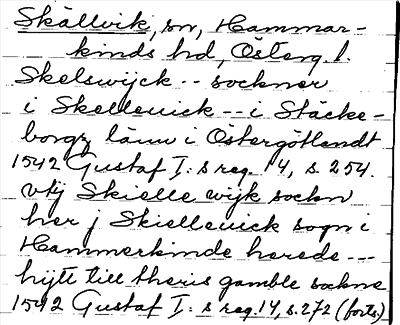 Skällvik, sn, Hammar-
kinds hd, Österg. l.
Skelswijck -- sockner
i Skelleuick -- i Stäcke-
borgz länn i Östergötlandt
1542 Gustaf I: s reg. 14, s. 254.
vtj Skielle wijk sockn
her j Skielleuick sogn i
Hammerkinde herede ---
hijtt till theris gamble sockne
1542 Gustaf I: s reg. 14, s. 272 (forts.)